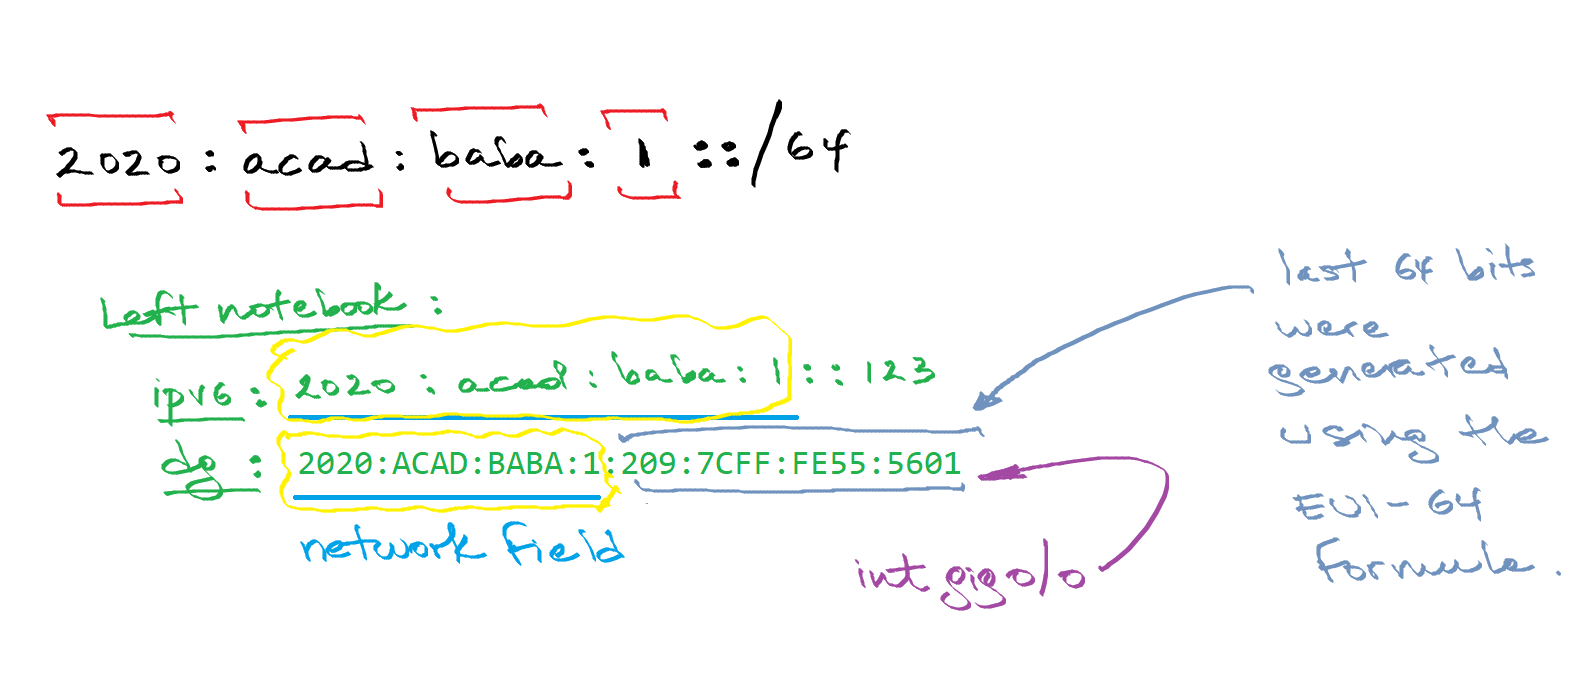 2020 : acad : baba : 1 :: /64
Left notebook :
ipv6 : 2020 : acad : baba : 1 :: 123
dg : 2020:ACAD:BABA:1:209:7CFF:FE55:5601
network field
int gig 0/0
last 64 bits
were
generated
using the
EUI-64
formula.